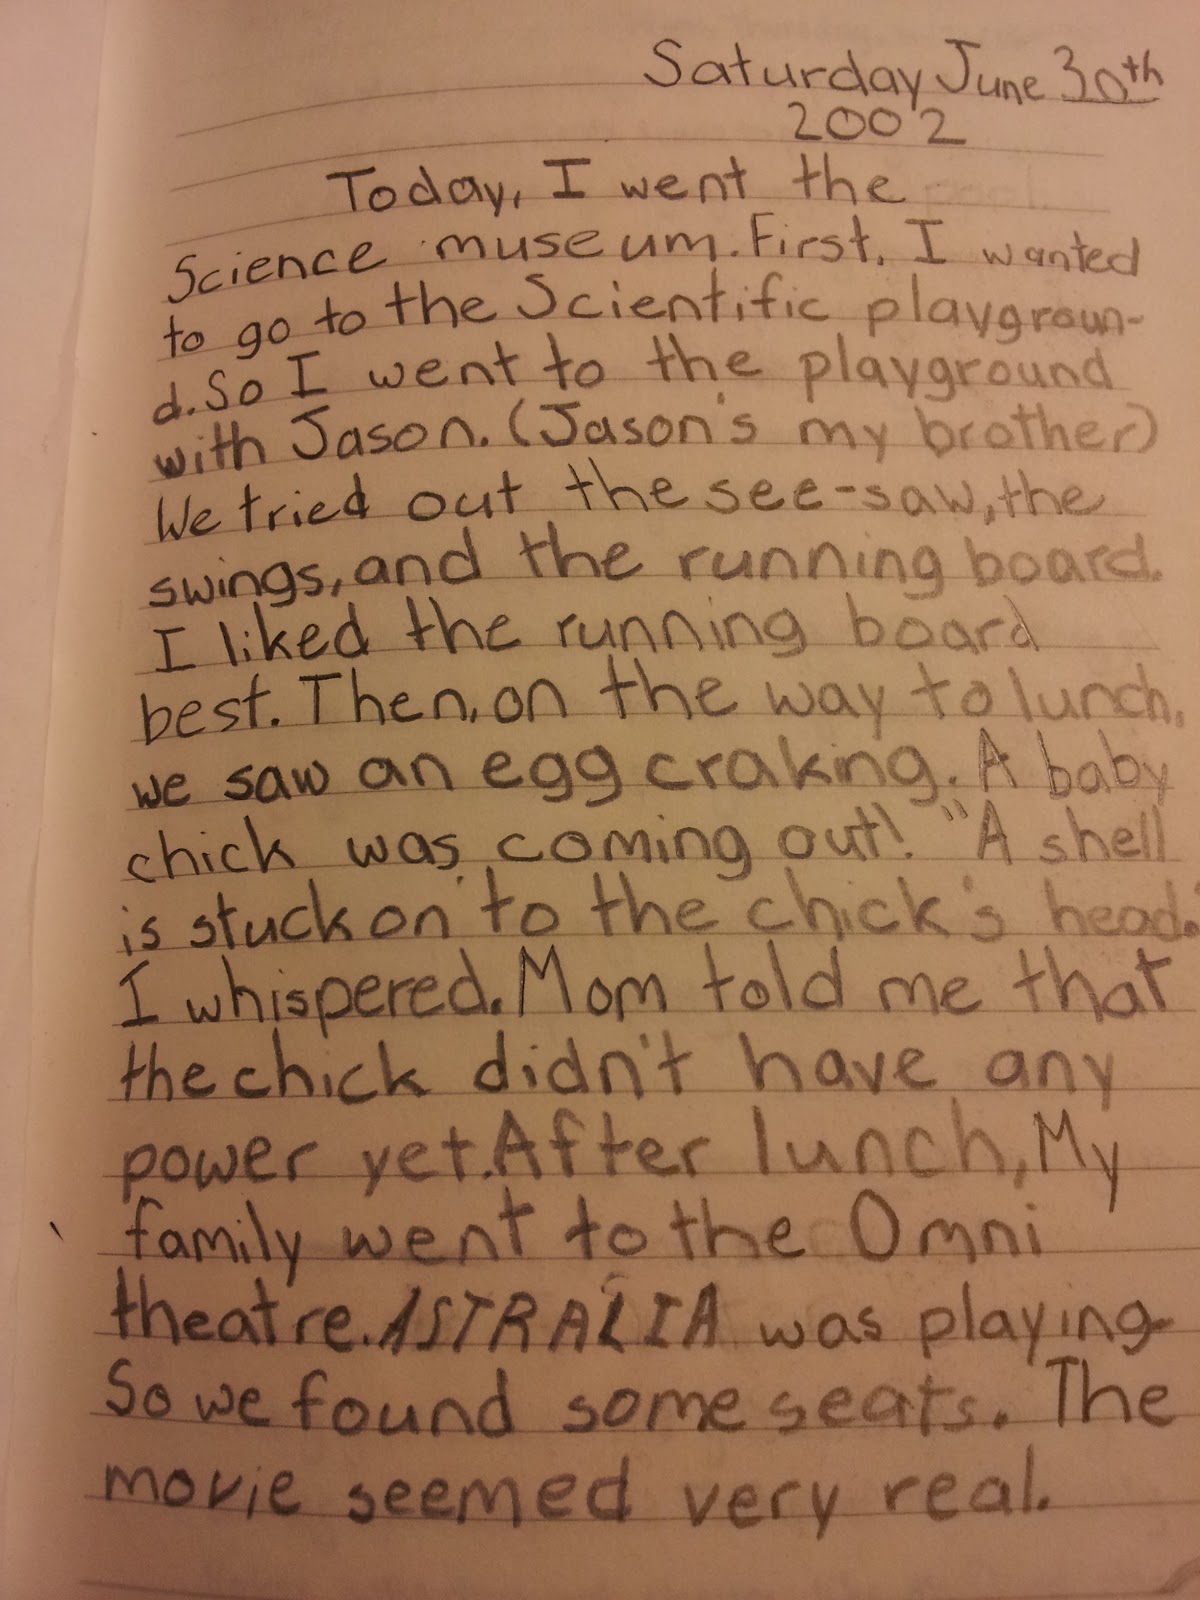 Saturday June 30th
2002
Today, I went the
Science museum. First, I wanted
to go to the Scientific playgroun-
d. So I went to the playground
with Jason. (Jason's my brother)
We tried out the see-saw, the
swings, and the running board.
I liked the running board
best. Then, on the way to lunch,
we saw an egg craking. A baby
chick was coming out! "A shell
is stuck on to the chick's head."
I whispered. Mom told me that
the chick didn't have any
power yet. After lunch, My
family went to the Omni
theatre. ASTRALIA was playing.
So we found some seats. The
movie seemed very real.